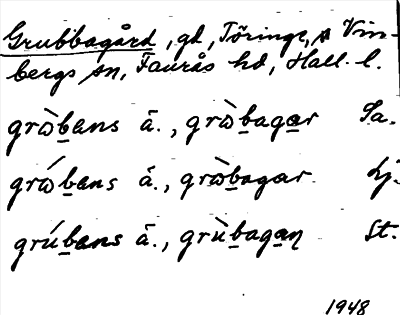 Grubbagård, gd, Töringe, Vin-
bergs sn, Faurås hd, Hall. l.
grὼbans å., grὼbagar Sa.
grώbans å., grὼbagar. Lj.
grúbans å., grùbagaɳ St.
1948